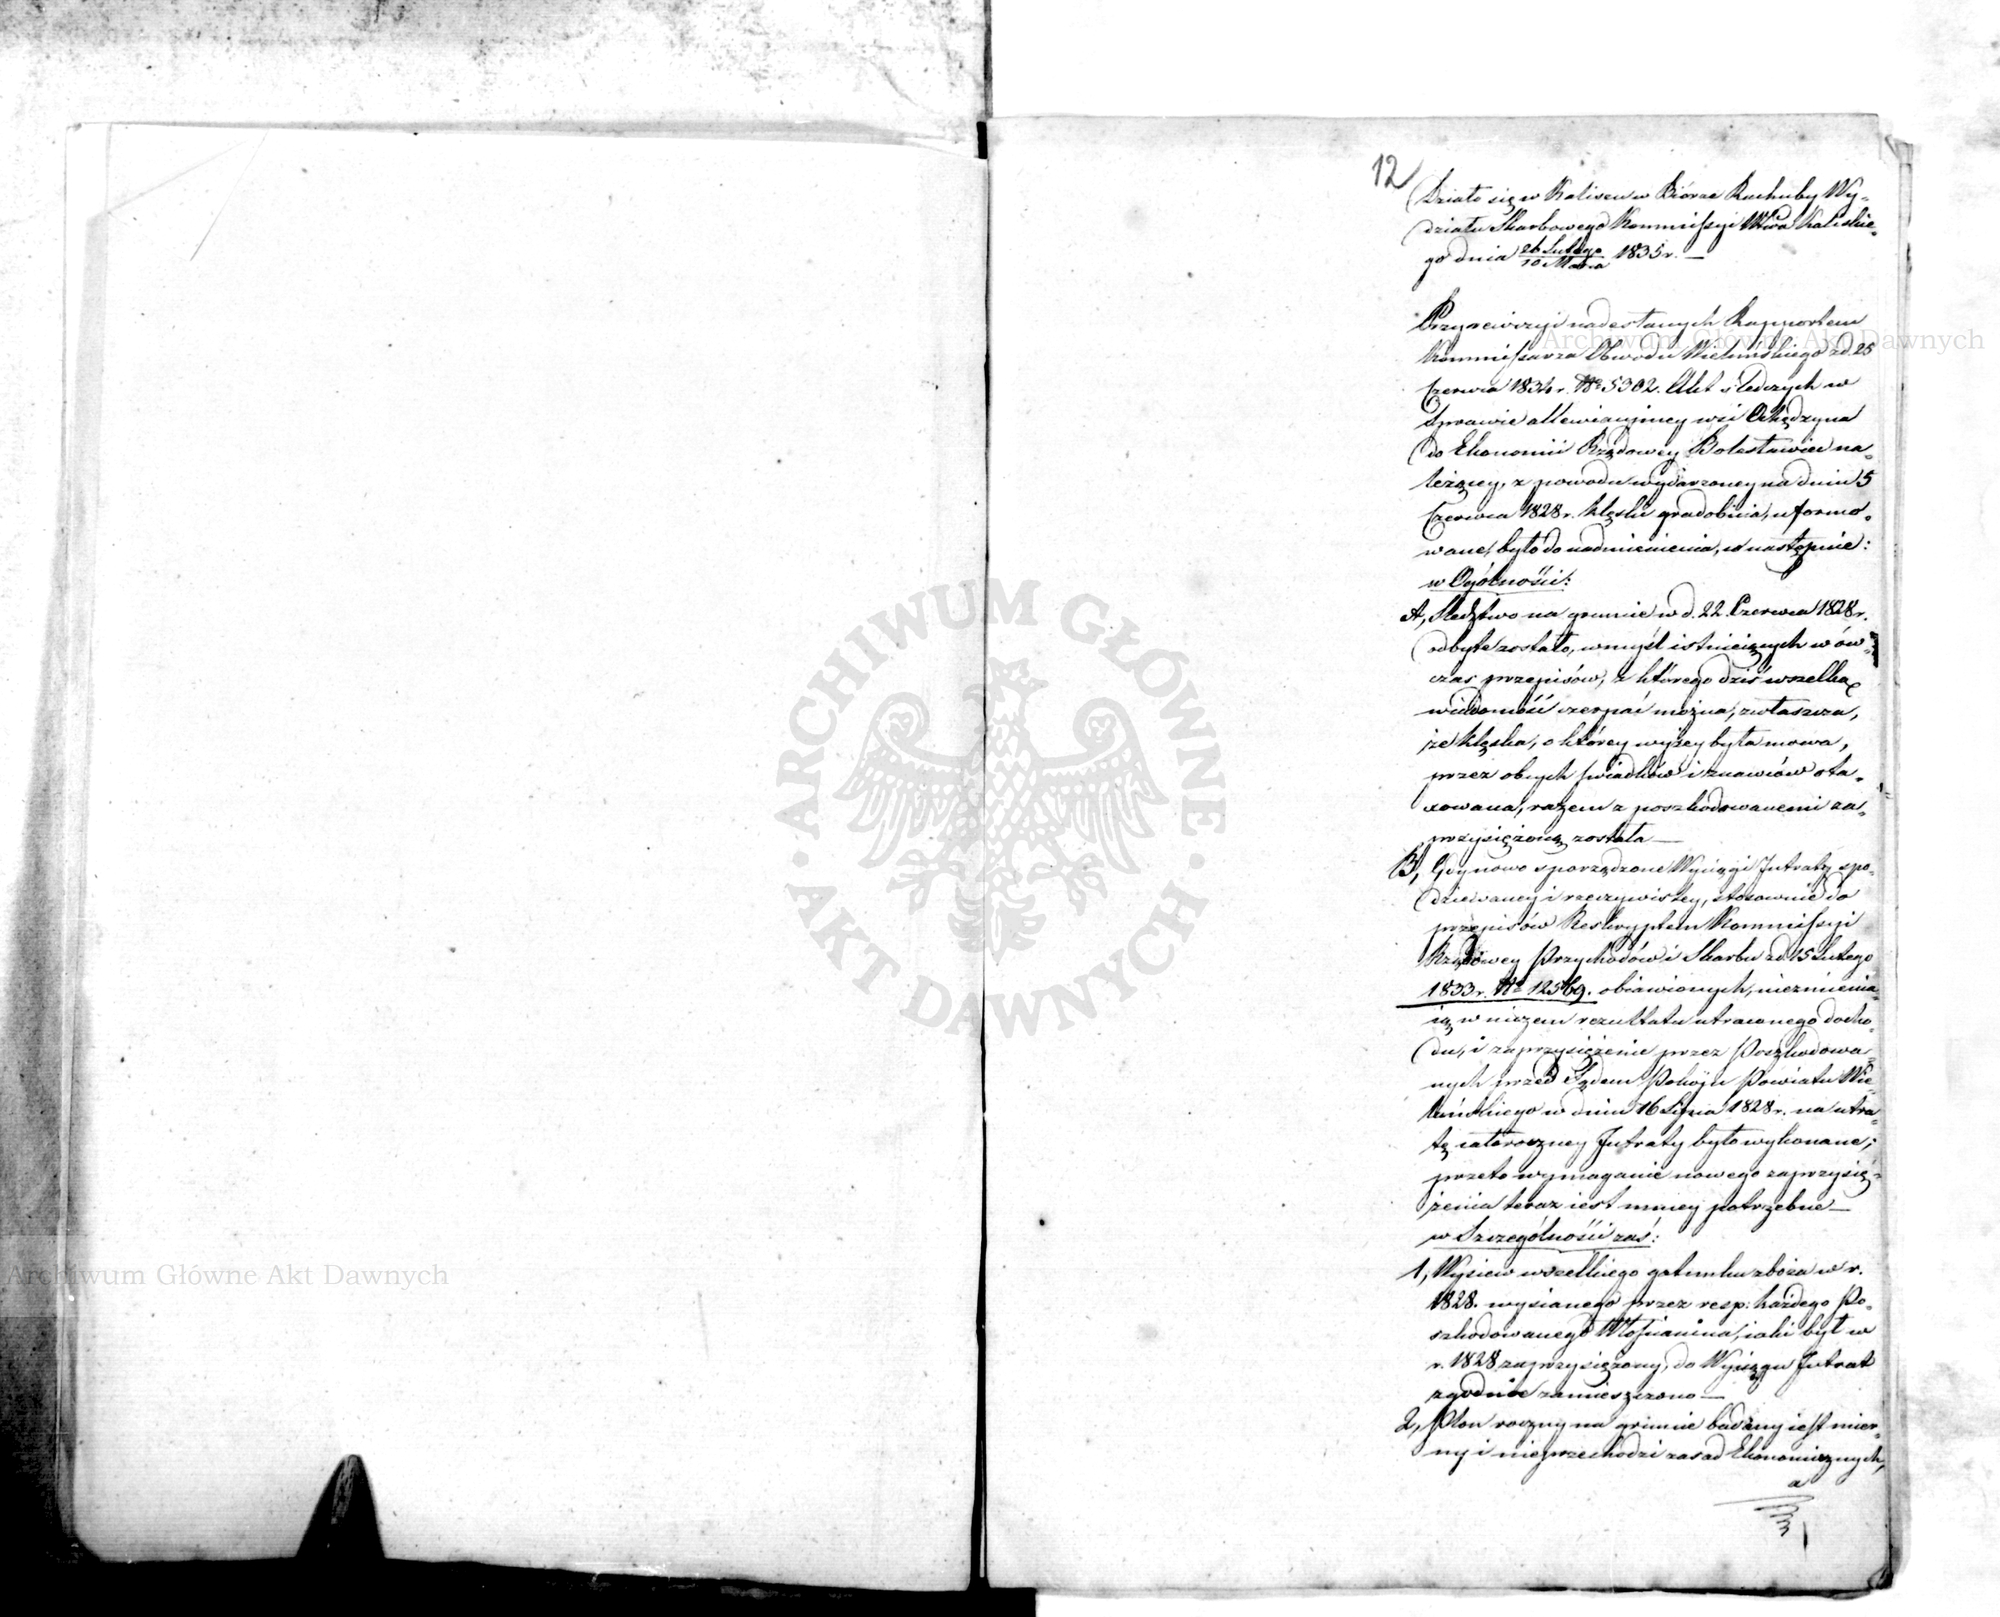 12
Działo się w Kaliszu w Biórze Rachuby Wy-
działu Skarbowego Kommissyi Wwa Kaliskie-
go dnia 26 Lutego / 10 Marca 1835 r. —
Przy rewizyi nadesłanych Rapportem
Kommissarza Obwodu Wieluńskiego z d. 25
Czerwca 1834 r. Nr 5302. Akt śledczych w
Sprawie allewiacyjney wsi Chędzyna
do Ekonomii Rządowey Bolesławiec na-
leżącey, z powodu wydarzoney na dniu 5
Czerwca 1828 r. klęski gradobicia, uformo-
wane, było do nadmienienia, co następuie:
w Ogólności:
A, Sledztwo na gruncie w d. 22. Czerwca 1828 r.
odbyte zostało, w myśl istnieiących w ów-
czas przepisów, z którego dziś wszelka
wiadomość czerpać można, zwłaszcza,
że klęska, o którey wyżey była mowa,
przez obcych swiadków i znawców ota-
xowana, razem z poszkodowanemi za-
przysiężoną została —
B, Gdy nowo sporządzone Wyciągi Jntraty spo-
dziewaney i rzeczywistey, stosownie do
przepisów Reskryptem Kommissyi
Rządowey Przychodów i Skarbu z d. 15 Lutego
1833 r. Nr 12569. obiawionych, niezmienia-
ią w niczem rezultatu utraconego docho-
du, i zaprzysiężenie przez Poszkodowa-
nych przed Sądem Pokoju Powiatu Wie-
luńskiego w dniu 16 Lipca 1828 r. na utra-
tę całoroczney Jntraty było wykonane;
przeto wymaganie nowego zaprzysię-
żenia teraz iest mniey potrzebne —
w Szczególności zaś:
1, Wysiew wszelkiego gatunku zboża w r.
1828. wysianego przez resp: każdego Po-
szkodowanego Włościanina, iaki był w
r. 1828 zaprzysiężony, do Wyciągu Jntrat
zgodnie zamieszczono —
2, Plon roczny na gruncie badany iest mier-
ny i nieprzechodzi zasad Ekonomicznych,
a
Archiwum Główne Akt Dawnych
Archiwum Główne Akt Dawnych
ARCHIWUM GŁÓWNE · AKT DAWNYCH ·